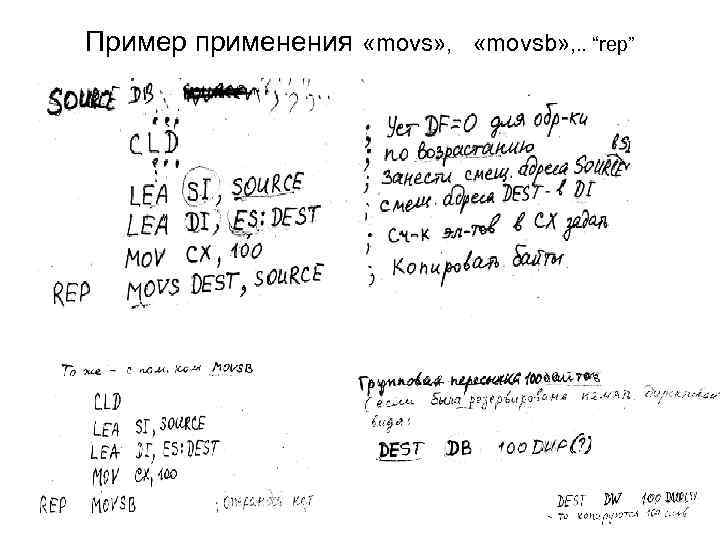 Пример применения «movs», «movsb»,.. “rep”
SOURCE DB
CLD ; Уст DF=0 для обр-ки
; по возрастанию
LEA SI, SOURCE ; Занести смещ. адреса SOURCE в SI
LEA DI, ES:DEST ; смещ. адреса DEST - в DI
MOV CX, 100 ; Сч-к эл-тов в CX задан
REP MOVS DEST, SOURCE ; Копировать байты
То же - с пом. ком MOVSB
CLD
LEA SI, SOURCE
LEA DI, ES:DEST
MOV CX, 100
REP MOVSB ; Операндов нет
Групповая пересылка 100 байтов
(если была резервирована память директивой
вида:
DEST DB 100 DUP(?)
DEST DW 100 DUP(?)
- то копируются 100 слов